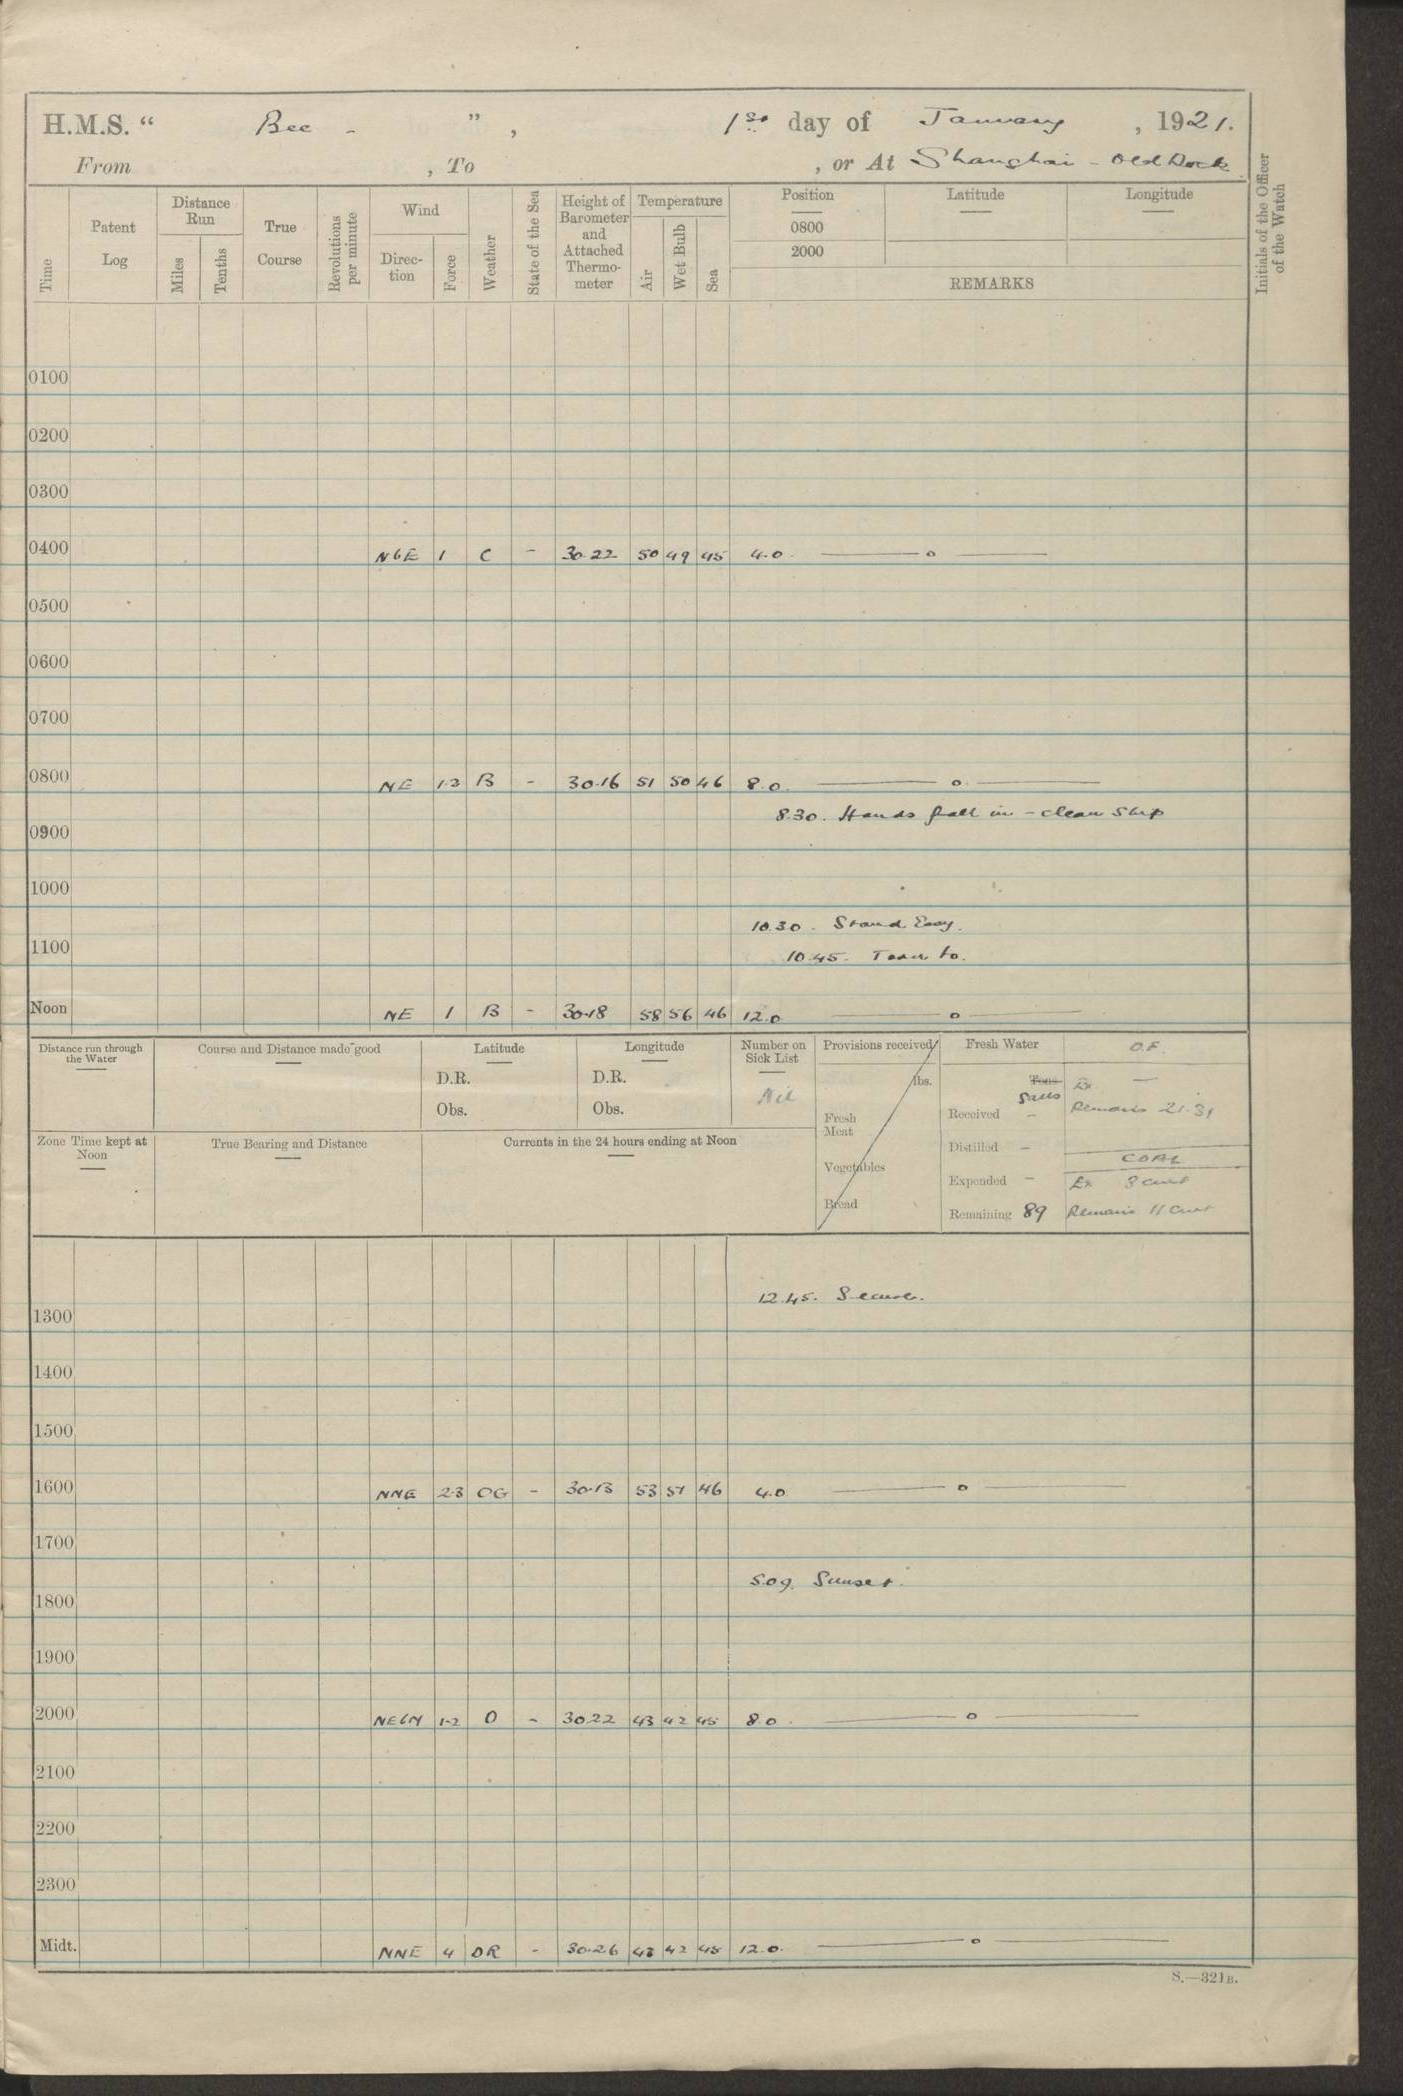 H.M.S. " Bee - " , 1st day of January , 1921.
From , To , or At Shanghai - Old Dock
Time
Patent Log
Distance Run
Miles
Tenths
True Course
Revolutions per minute
Wind
Direction
Force
Weather
State of the Sea
Height of Barometer and Attached Thermometer
Temperature
Air
Wet Bulb
Sea
Position
0800
2000
Latitude
Longitude
REMARKS
Initials of the Officer of the Watch
0100
0200
0300
0400 NbE 1 C - 30.22 50 49 45 4.0 —— o ——
0500
0600
0700
0800 NE 1-2 B - 30.16 51 50 46 8.0 —— o ——
8.30. Hands fall in - clean Ship
0900
1000
10.30. Stand Easy.
1100
10.45. Turn to.
Noon NE 1 B - 30.18 58 56 46 12.0 —— o ——
Distance run through the Water
Course and Distance made good
Latitude
D.R.
Obs.
Longitude
D.R.
Obs.
Number on Sick List
Nil
Provisions received
lbs.
Fresh Meat
Vegetables
Bread
Fresh Water
Tons
Galls
Received -
Distilled -
Expended -
Remaining 89
O.F.
Ex —
Remains 21.31
COAL
Ex 3 cwt
Remains 11 Cwt
Zone Time kept at Noon
True Bearing and Distance
Currents in the 24 hours ending at Noon
12.45. Secure.
1300
1400
1500
1600 NNE 2-3 OG - 30.13 53 51 46 4.0 —— o ——
1700
5.09. Sunset.
1800
1900
2000 NEbN 1-2 O - 30.22 43 42 45 8.0. —— o ——
2100
2200
2300
Midt. NNE 4 OR - 30.26 43 42 45 12.0. —— o ——
S.—321B.